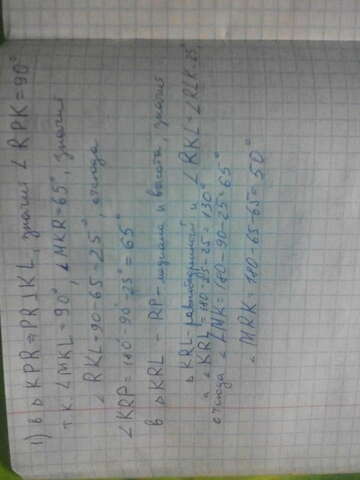 1) в △ KPR = PR⊥KL, значит ∠RPK=90°
т.к ∠MKL=90°, ∠MKR=65°, значит
∠RKL=90-65=25°, отсюда
∠KRP=180°-90°-25°=65°
в △KRL - RP- медиана и высота, значит
△ KRL- равнобедренный и ∠RKL=∠RLK=25°
∠KRL=180°-25-25=130°
отсюда ∠LMK=180-90-25=65°
∠MRK 180-65-65=50°